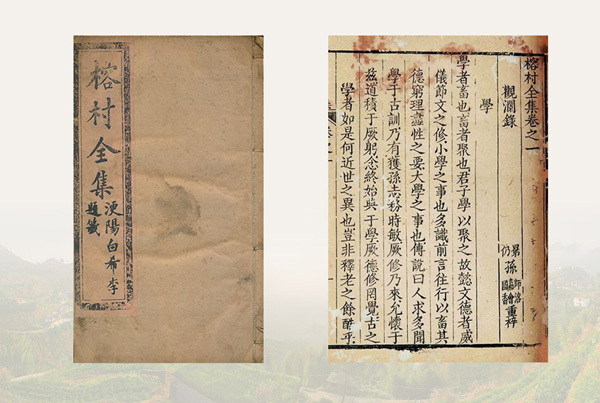 榕村全集
浭陽白希李
題籤
榕村全集卷之一
觀瀾錄
晜仍孫
重梓
學
學者畜也畜者聚也君子學以聚之故懿文德者威
儀節文之修小學之事也多識前言往行以畜其
德窮理盡性之要大學之事也傳說曰人求多聞
學于古訓乃有獲孫志務時敏厥修乃來允懷于
茲道積于厥躬念終始典于學厥德修罔覺古之
學者如是何近世之異也豈非釋老之餘乎